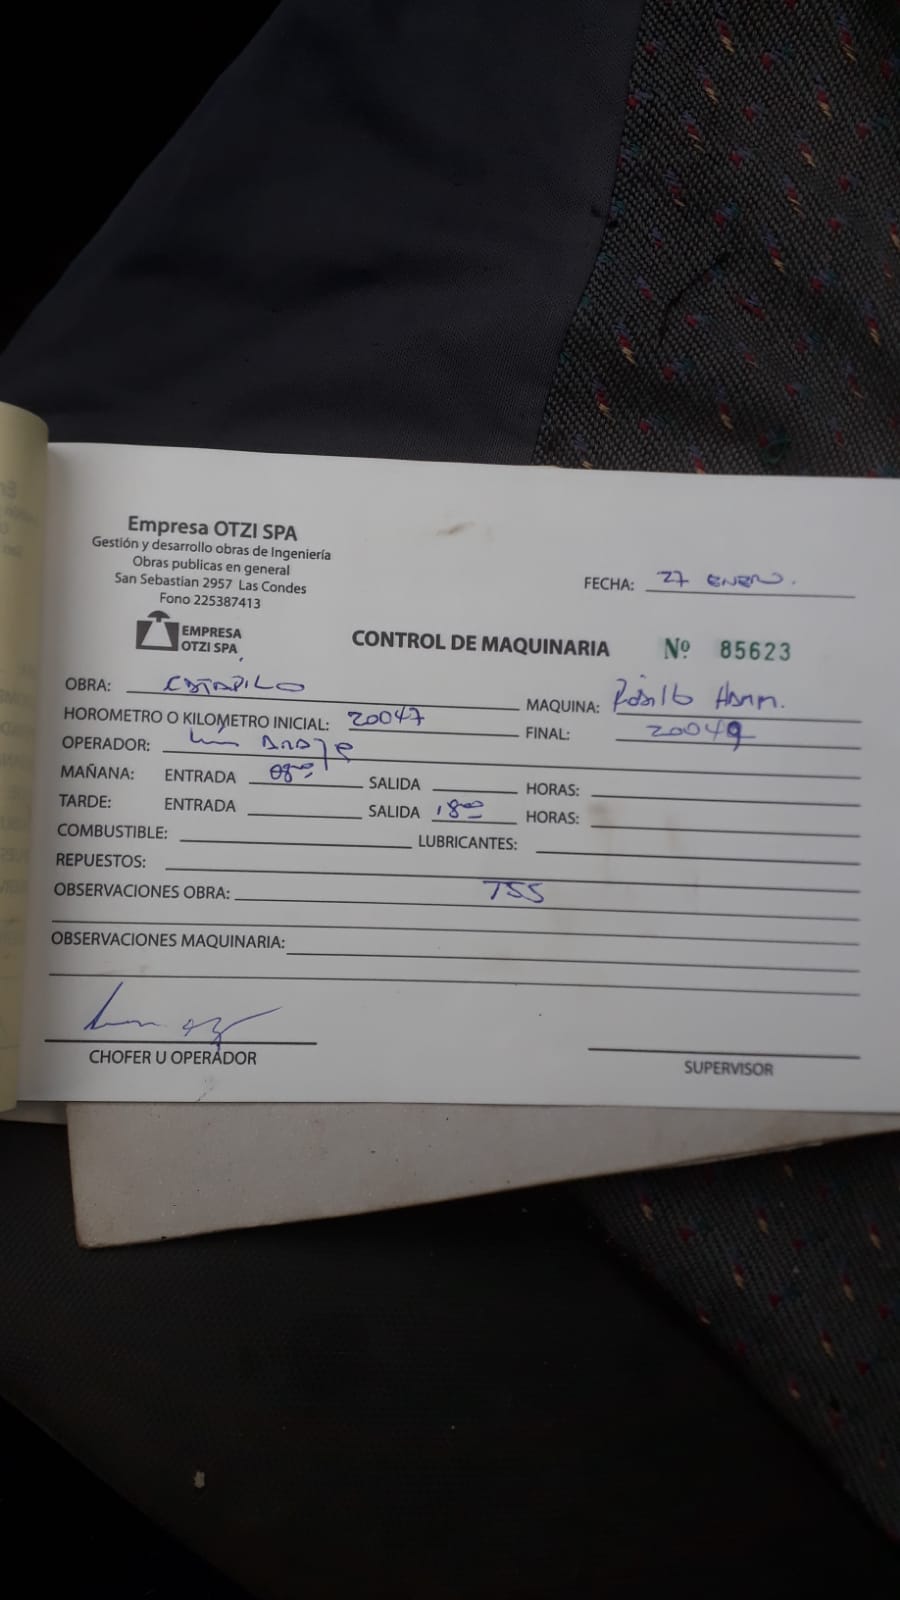 Empresa OTZI SPA
Gestión y desarrollo obras de Ingeniería
Obras publicas en general
San Sebastian 2957 Las Condes
Fono 225387413
EMPRESA
OTZI SPA
FECHA: 27 ENERO.
CONTROL DE MAQUINARIA Nº 85623
OBRA: MAQUINA: Rodillo Hamm.
HOROMETRO O KILOMETRO INICIAL: 20047 FINAL: 20049
OPERADOR: Luis
MAÑANA: ENTRADA 08:00 SALIDA HORAS:
TARDE: ENTRADA SALIDA 18:00 HORAS:
COMBUSTIBLE: LUBRICANTES:
REPUESTOS:
OBSERVACIONES OBRA: TSS
OBSERVACIONES MAQUINARIA:
CHOFER U OPERADOR
SUPERVISOR